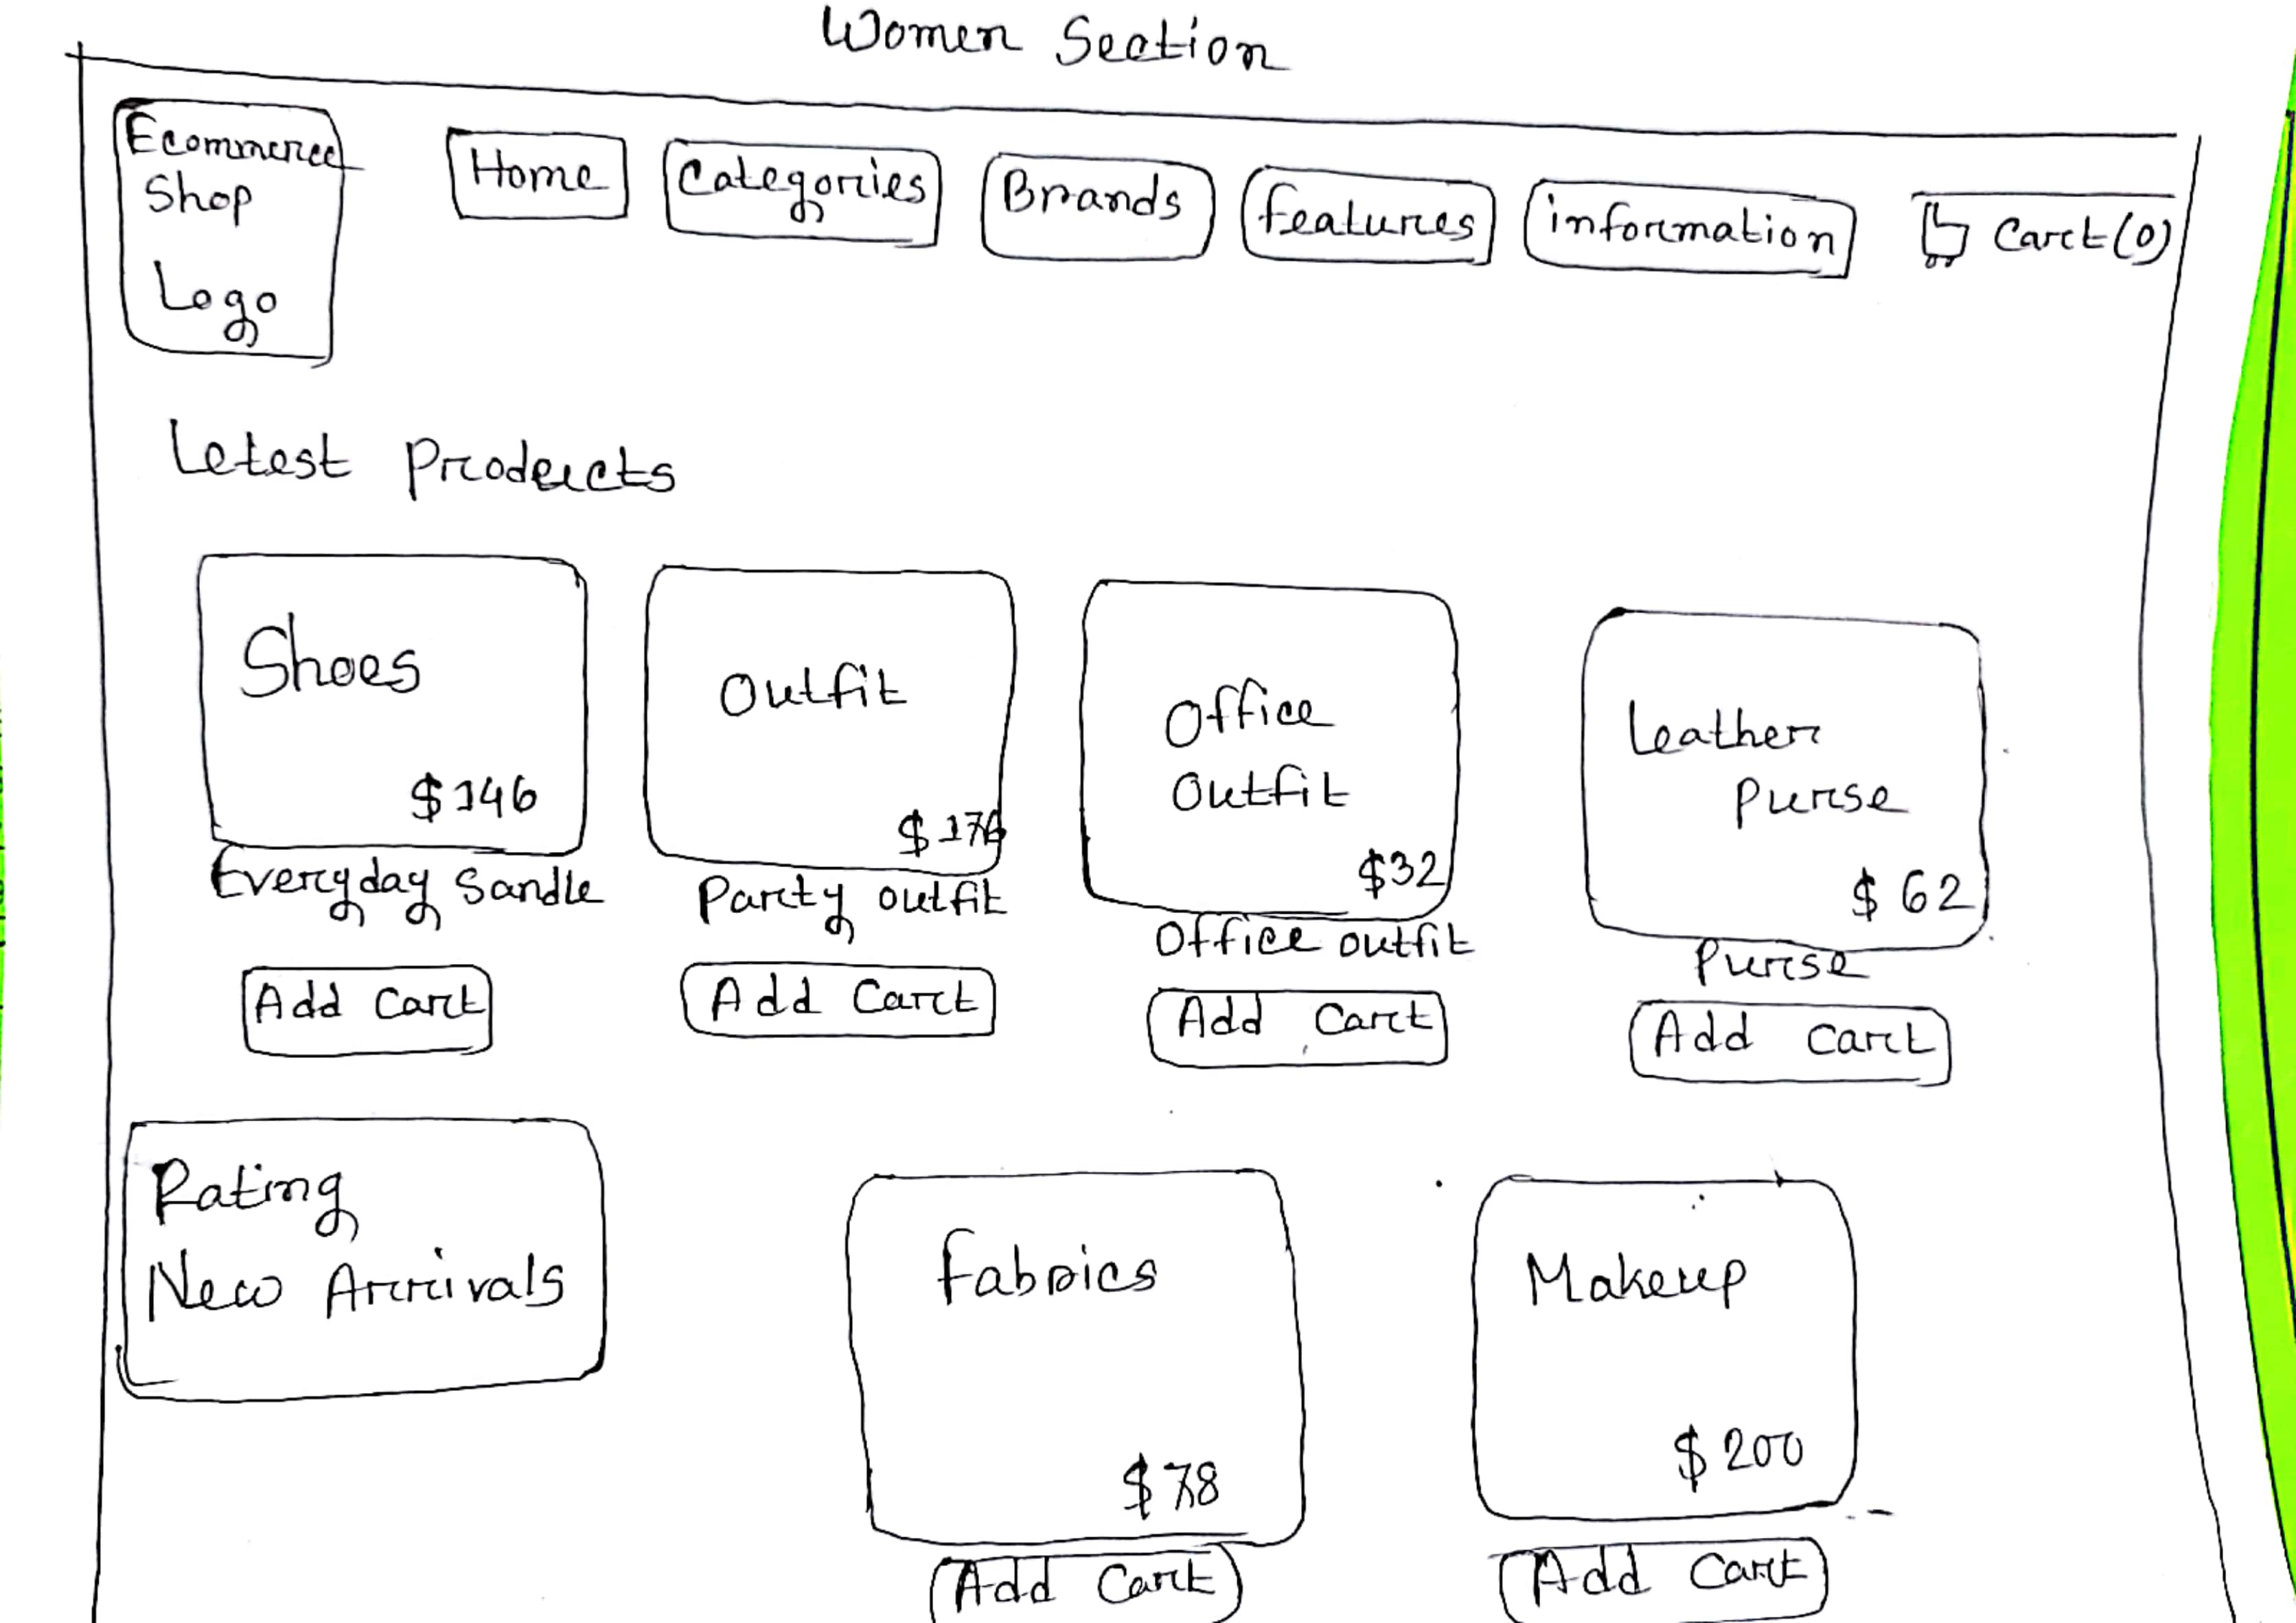 Women Section
Ecommerce
Shop
Logo
Home
Categories
Brands
features
information
Cart (0)
Letest Products
Shoes
$146
Everyday Sandle
Add Cart
Outfit
Party outfit
Add Cart
Office
Outfit
$32
Office outfit
Add Cart
Leather
Purse
$62
Purse
Add Cart
Rating
New Arrivals
fabrics
$78
Add Cart
Makeup
$200
Add Cart